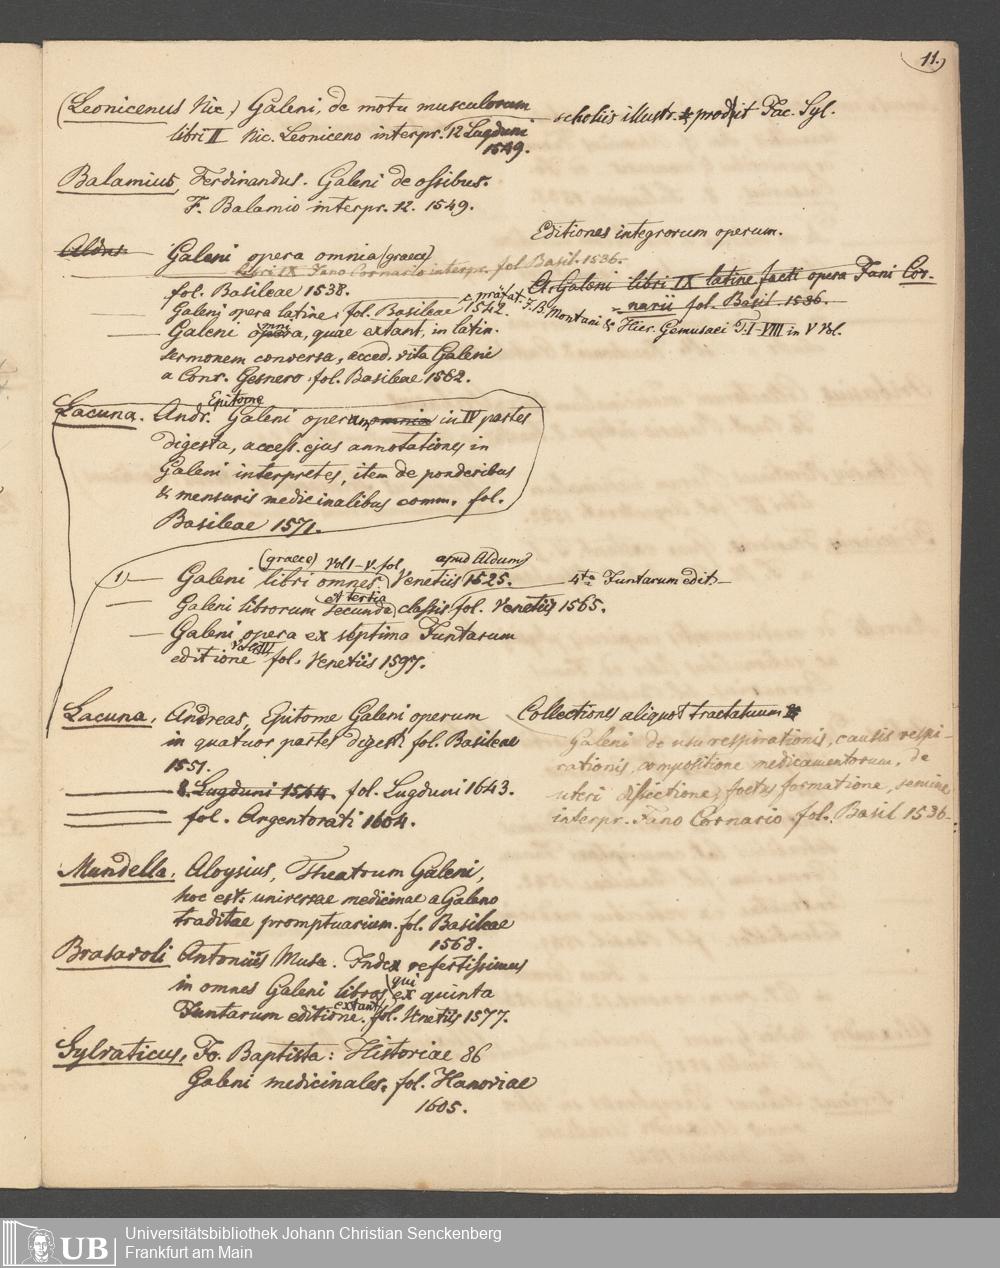 11.
(Leonicenus Nic.) Galeni, de motu musculorum
libri II Nic. Leoniceno interpr. 12 Lugduni
1549.
scholiis illustr. & prodiit Jac. Syl.
Balamius, Ferdinandus. Galeni de ossibus.
F. Balamio interpr. 12. 1549.
Editiones integrorum operum.
Aldus
Galeni opera omnia (graece)
libri IX Jano Cornario interpr. fol Basil. 1536.
fol. Basileae 1538.
A. Galeni libri IX latine facti opera Jani Cor-
narii fol. Basil. 1536.
Galeni opera latine, fol. Basileae 1542. c. präfat. J. B. Montani & Hier. Gemusaei T. I-VIII in V Vol.
Galeni omnia, quae extant, in latin.
sermonem conversa, acced. vita Galeni
a Conr. Gesnero. fol. Basileae 1562.
Lacuna. Andr. Epitome Galeni operum omnia in IV partes
digesta, access. ejus annotationes in
Galeni interpretes, item de ponderibus
& mensuris medicinalibus comm. fol.
Basileae 1571.
(graece) Vol I-V. fol. apud Aldum
1) Galeni libri omnes. Venetiis 1525.
4ta Juntarum edit.
et tertia
Galeni librorum secunda classis fol. Venetiis 1565.
Galeni opera ex septima Juntarum
editione fol. Venetiis 1597.
Lacuna, Andreas, Epitome Galeni operum
in quatuor partes digest. fol. Basileae
1551.
8. Lugduni 1564. fol. Lugduni 1643.
fol. Argentorati 1604.
Collectiones aliquot tractatuum
Galeni de usu respirationis, causis respi-
rationis, compositione medicamentorum, de
uteri dissectione, foetus formatione, semine
interpr. Jano Cornario. fol. Basil 1536.
Mundella, Aloysius, Theatrum Galeni,
hoc est: universae medicinae a Galeno
traditae promptuarium. fol. Basileae
1568.
Brasavoli Antonius Musa. Index refertissimus
in omnes Galeni libros, qui ex quinta
Juntarum editione extant. fol. Venetiis 1577.
Sylvaticus, Jo. Baptista: Historiae 86
Galeni medicinales. fol. Hanoviae
1605.
UB
Universitätsbibliothek Johann Christian Senckenberg
Frankfurt am Main